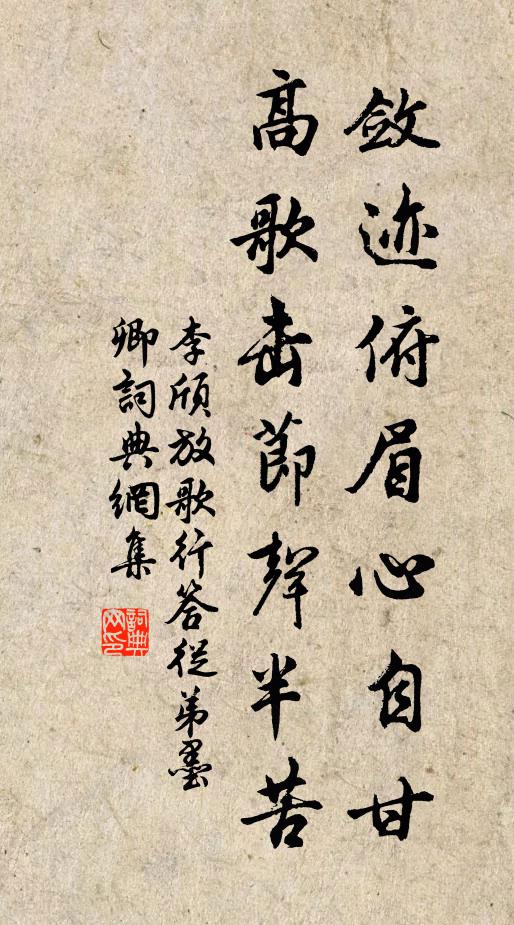 斂迹俯眉心自甘
高歌击節聲半苦
李頎放歌行荅從弟墨
卿詞典網集
詞典
网印